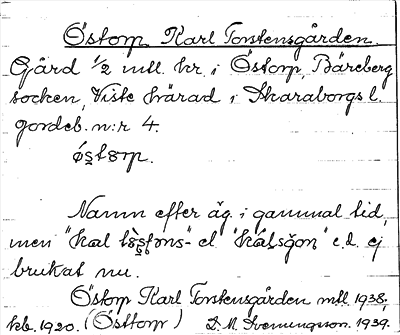 Östorp Karl Torstensgården.
Gård 1/2 mtl. kr. i Östorp, Bäreberg
socken, Viste härad i Skaraborgs l.
jordeb. n:r 4.
Namn efter äg. i gammal tid,
men el. e.d. ej
brukat nu.
Östorp Karl Torstensgården mtl. 1938;
kb. 1920. (Östtorp) D. M. 1939.